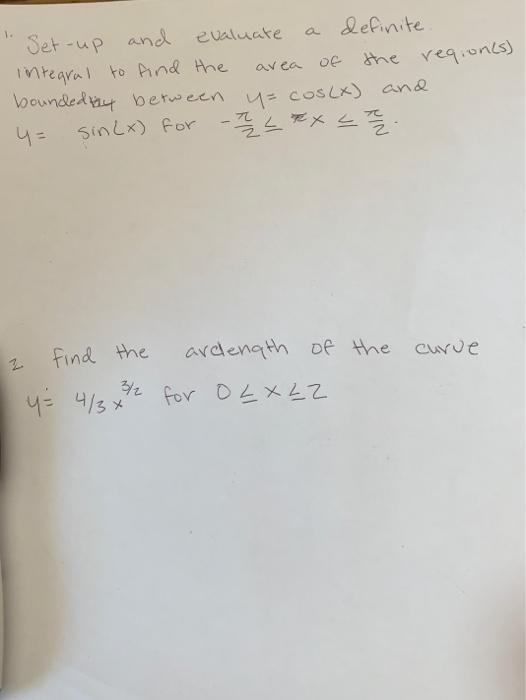 1. Set-up and evaluate a definite
integral to find the area of the region(s)
bounded between y= cos(x) and
y= sin(x) for -π/2 ≤ x ≤ π/2.
2 find the arclength of the curve
y= 4/3 x^3/2 for 0≤x≤2